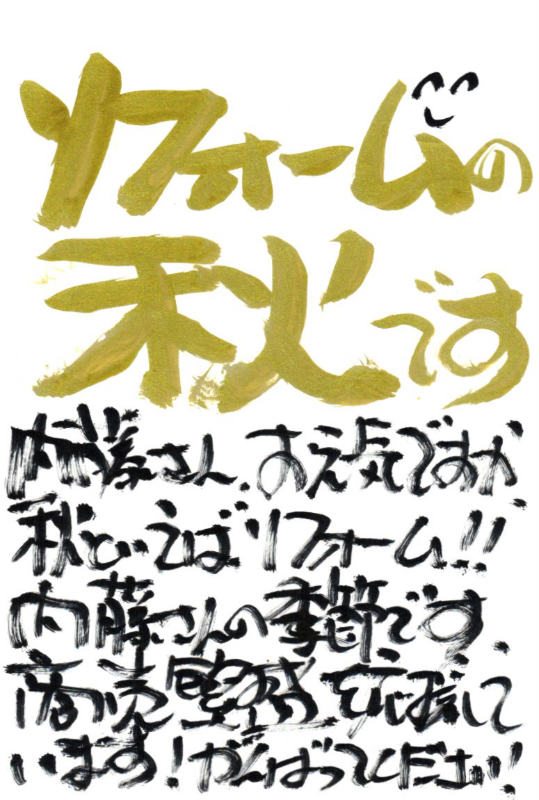 リフォームの
秋です
内藤さん、お元気ですか
秋といえばリフォーム!!
内藤さんの季節です、
商売繁盛応援して
います!がんばってください!